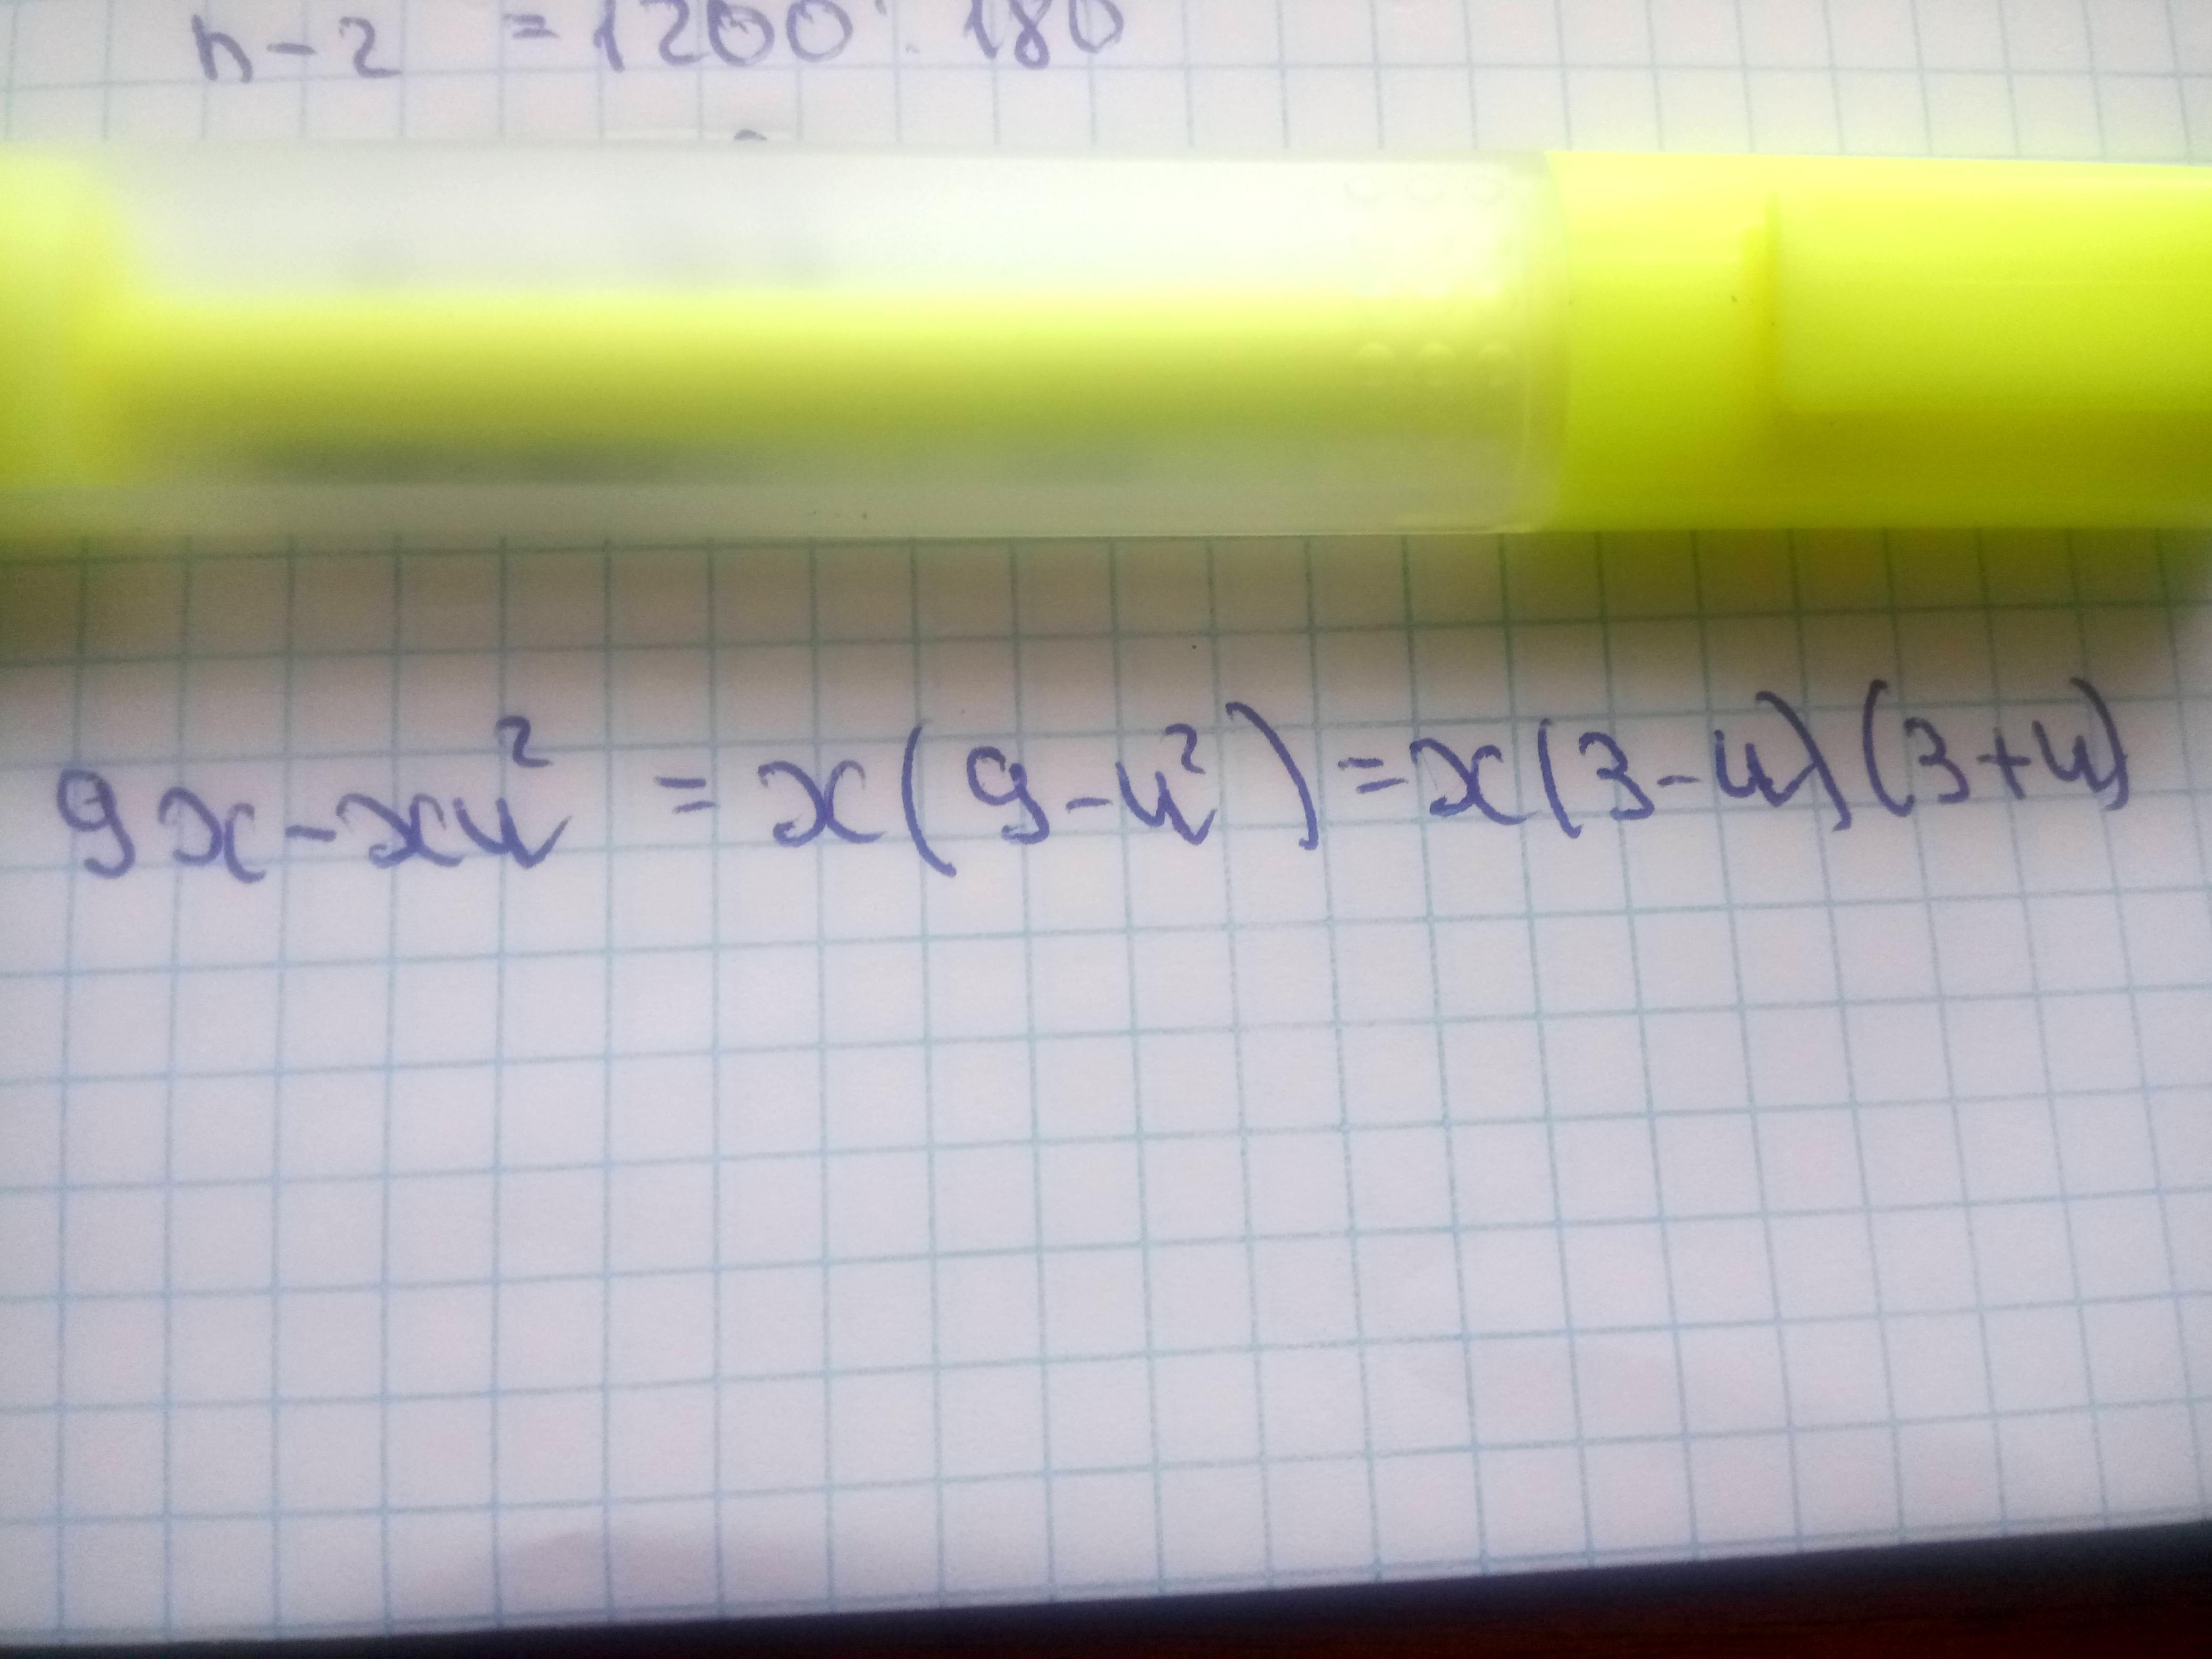 n-2 = 1200 : 180
9x-xu² = x(9-u²)=x(3-u)(3+u)